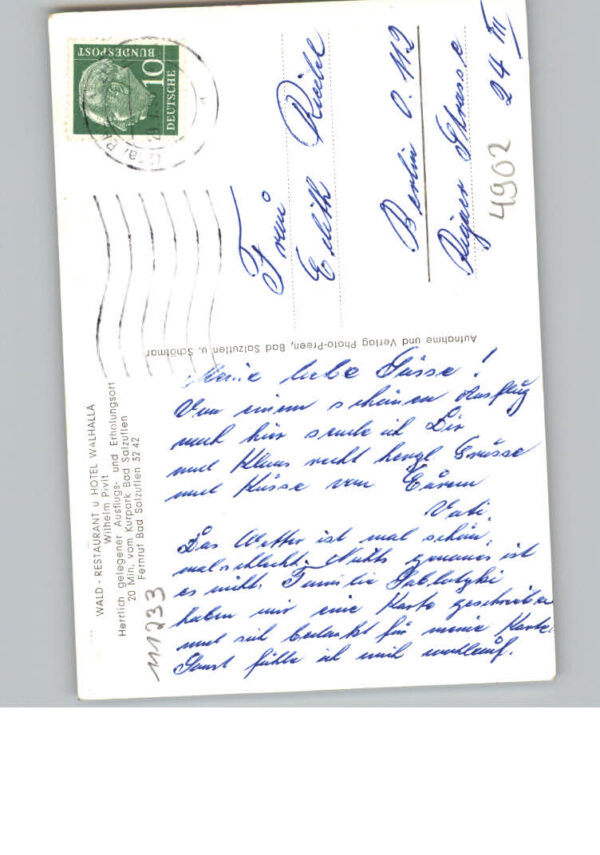 WALD - RESTAURANT u HOTEL WALHALLA
Wilhelm Pivit
Herrlich gelegener Ausflugs- und Erholungsort
20 Min. vom Kurpark Bad Salzuflen
Fernruf Bad Salzuflen 32 42
11233
Meine liebe Süsse!
Von einem schönen Ausflug
nach hier sende ich Dir
und Klaus recht herzl Grüsse
und Küsse von Eurem
Vati
Das Wetter ist mal schön,
mal schlecht. Nichts genaues ist
es nicht. Familie
haben mir eine Karte geschrieben
und sich bedankt für meine Karte.
Sonst fühle ich mich wohlauf.
Aufnahme und Verlag Photo-Preen, Bad Salzuflen u. Schötmar
10
DEUTSCHE
BUNDESPOST
Frau
Edith
Berlin O. 112
Rigaer Strasse
24 III
4902